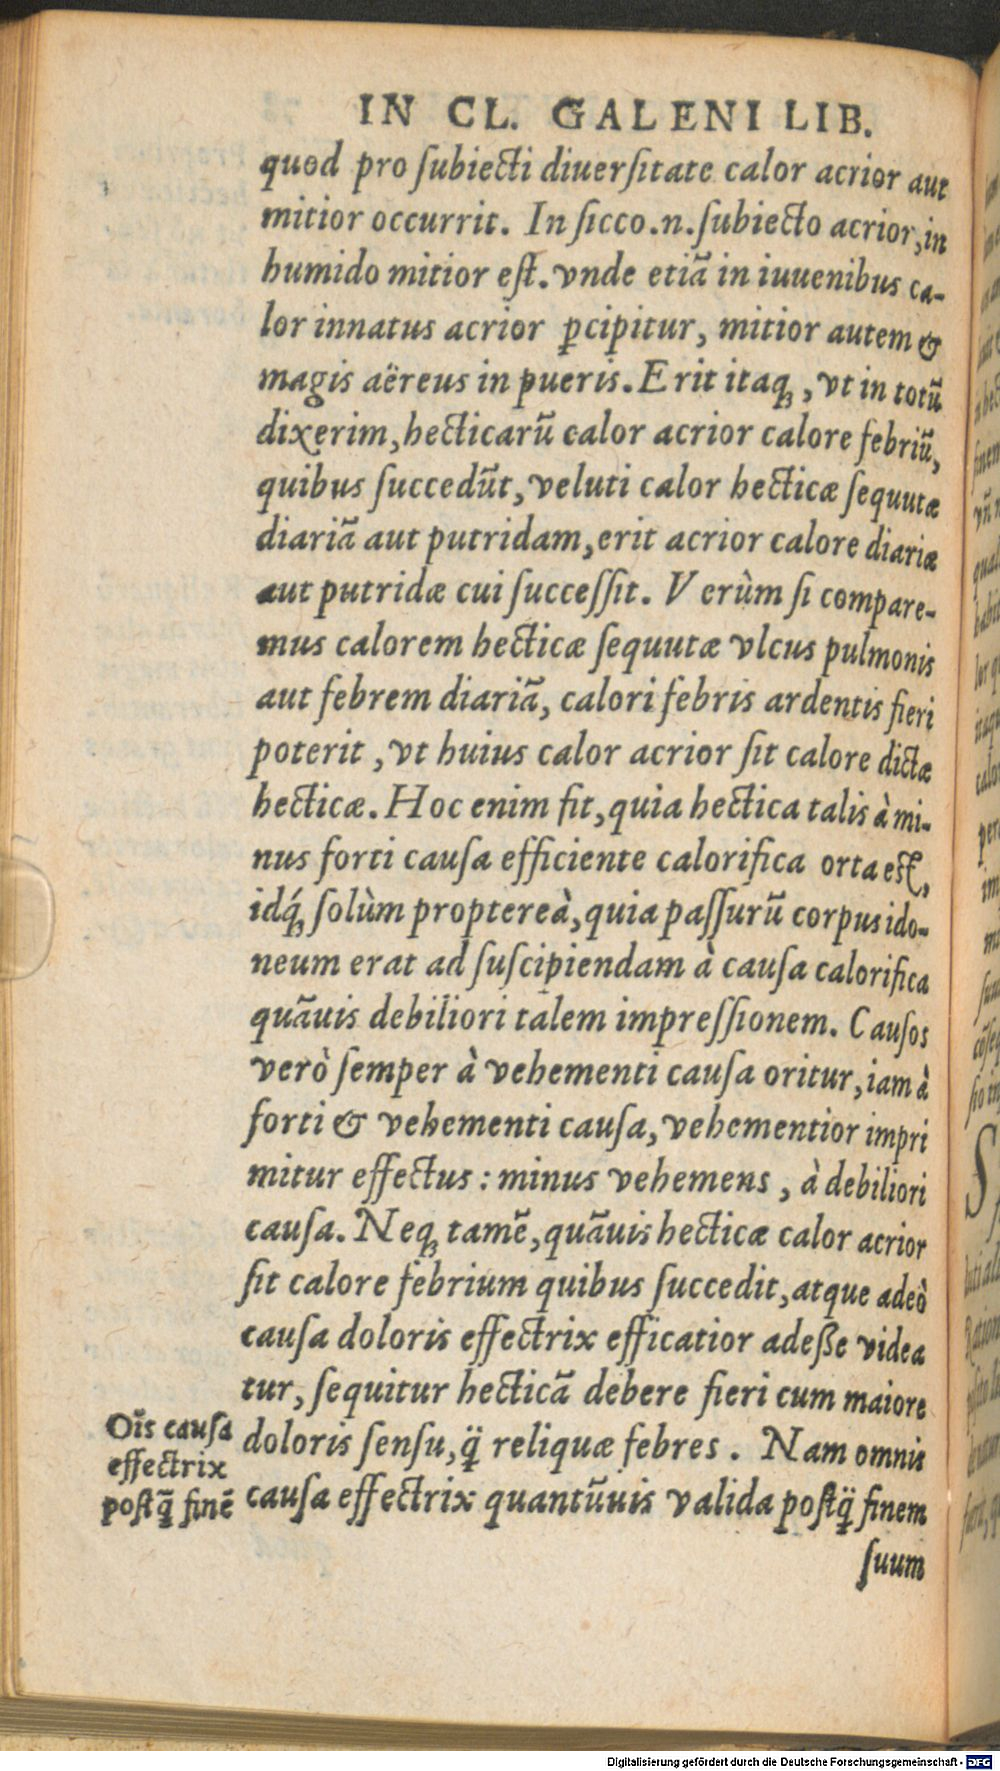 IN CL. GALENI LIB.
quod pro ſubiecti diuerſitate calor acrior aut
mitior occurrit. In ſicco.n.ſubiecto acrior,in
humido mitior eſt. vnde etiā in iuuenibus ca-
lor innatus acrior ꝑcipitur, mitior autem &
magis aëreus in pueris. Erit itaqꝫ, vt in totū
dixerim, hecticarū calor acrior calore febriū,
quibus ſuccedūt, veluti calor hecticæ ſequutæ
diariā aut putridam, erit acrior calore diariæ
aut putridæ cui ſucceſſit. Verùm ſi compare-
mus calorem hecticæ ſequutæ vlcus pulmonis
aut febrem diariā, calori febris ardentis fieri
poterit, vt huius calor acrior ſit calore dictæ
hecticæ. Hoc enim fit, quia hectica talis à mi-
nus forti cauſa efficiente calorifica orta eſt,
idq́ꝫ ſolùm propterea̋, quia paſſurū corpus ido-
neum erat ad ſuſcipiendam à cauſa calorifica
quāuis debiliori talem impreſſionem. Cauſos
verò ſemper à vehementi cauſa oritur, iam à
forti & vehementi cauſa, vehementior impri
mitur effectus: minus vehemens, à debiliori
cauſa. Neqꝫ tamē, quāuis hecticæ calor acrior
ſit calore febrium quibus ſuccedit, atque adeò
cauſa doloris effectrix efficatior adeſſe videa
tur, ſequitur hecticā debere fieri cum maiore
doloris ſenſu, q̈ꝫ reliquæ febres. Nam omnis
cauſa effectrix quantūuis valida poſtq̈ꝫ finem
ſuum
Oīs cauſa
effectrix
poſtq̄ꝫ finē
Digitalisierung gefördert durch die Deutsche Forschungsgemeinschaft - DFG